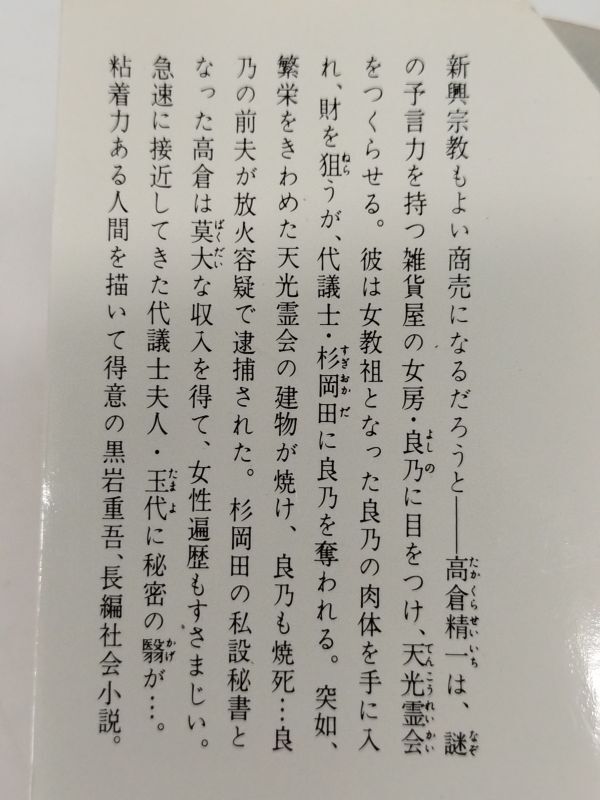 新興宗教もよい商売になるだろうと――高倉精一は、謎
の予言力を持つ雑貨屋の女房・良乃に目をつけ、天光霊会
をつくらせる。彼は女教祖となった良乃の肉体を手に入
れ、財を狙うが、代議士・杉岡田に良乃を奪われる。突如、
繁栄をきわめた天光霊会の建物が焼け、良乃も焼死…良
乃の前夫が放火容疑で逮捕された。杉岡田の私設秘書と
なった高倉は莫大な収入を得て、女性遍歴もすさまじい。
急速に接近してきた代議士夫人・玉代に秘密の翳が…。
粘着力ある人間を描いて得意の黒岩重吾、長編社会小説。